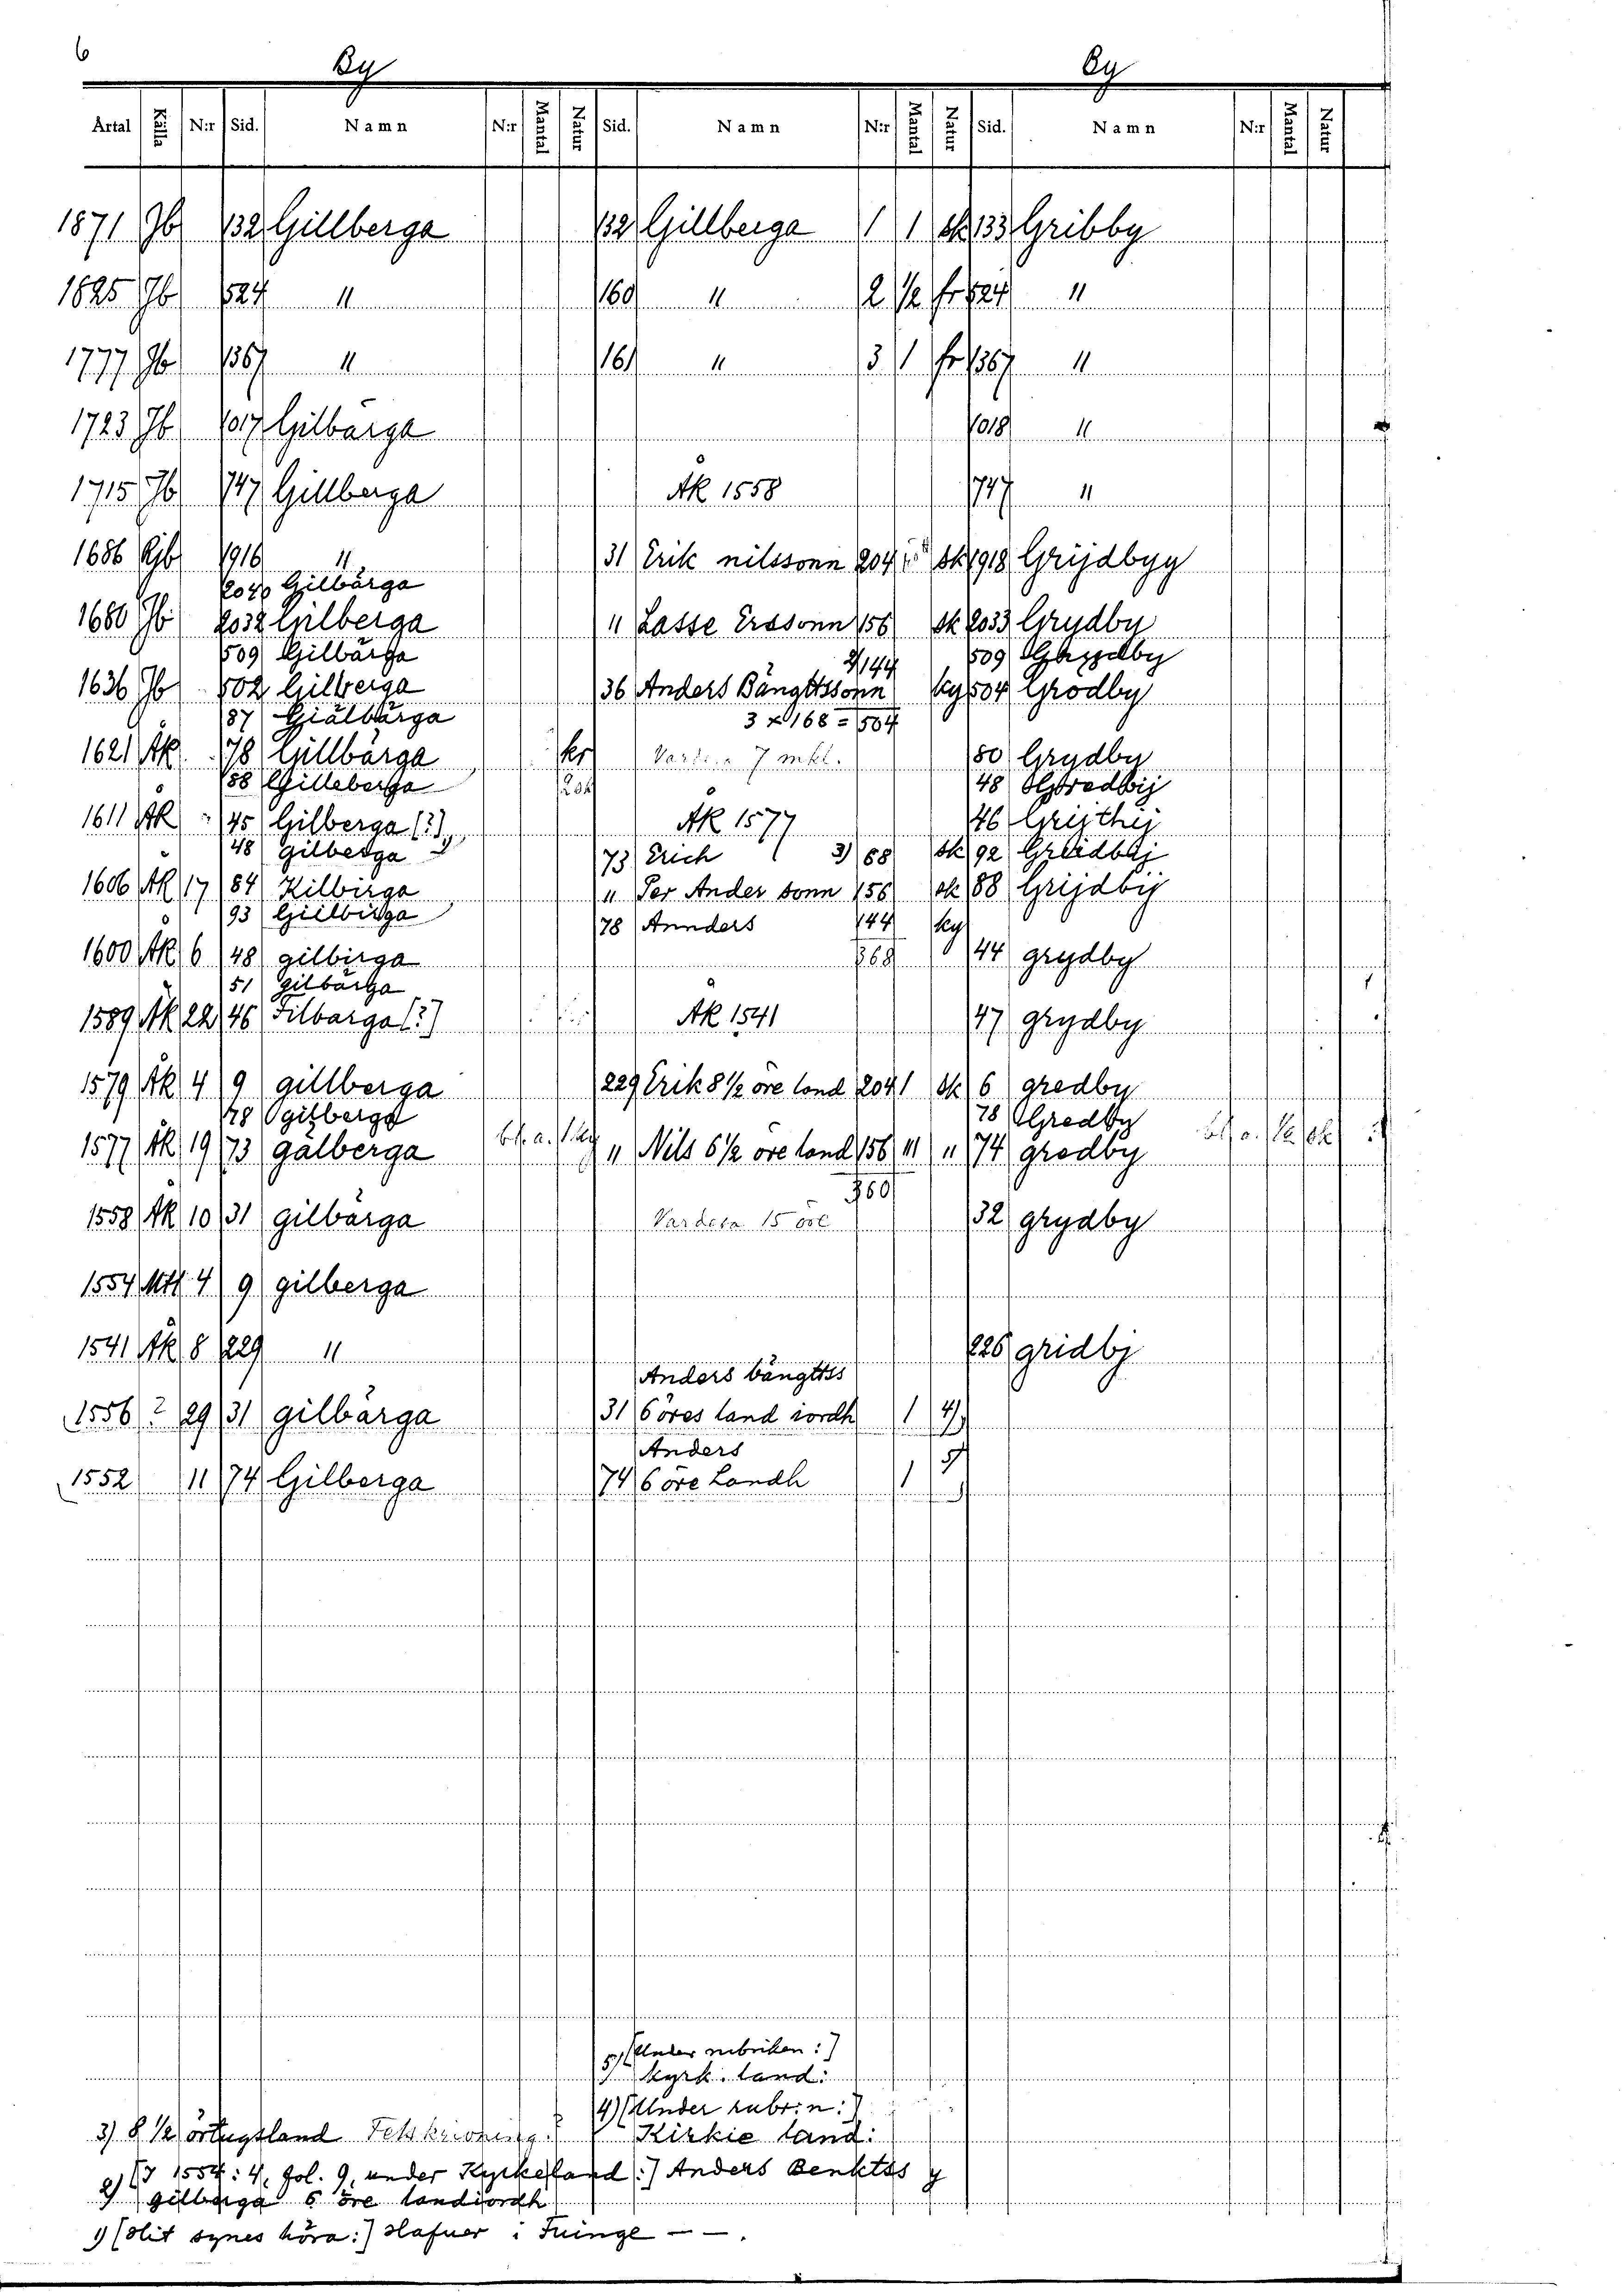 6
By By
Artal Källa N:r Sid. Namn N:r Mantal Natur Sid. Namn N:r Mantal Natur Sid. Namn N:r Mantal Natur
1871 Jb 132 Gillberga 132 Gillberga 1 1 sk 133 Gribby
1825 Jb 524 " 160 " 2 1/2 fr 524 "
1777 Jb 1367 " 161 " 3 1 fr 1367 "
1723 Jb 1017 Gilbärga 1018 "
1715 Jb 747 Gillberga ÅK 1558 747 "
1686 Rjb 1916 " 31 Erik nilssonn 204 sk 1918 Grijdbyy
2040 Gilbärga
1680 Jb 2032 Gilberga " Lasse Erssonn 156 sk 2033 Grydby
509 Gilbärga 2/144 509
1636 Jb 502 Gilberga 36 Anders Bängttssonn ky 504 Grödby
87 Giälbärga 3 x 168 = 504
1621 Åk 78 Gillbärga kr 7 mkl. 80 Grydby
88 Gilleberga 48
1611 ÅK 45 Gilberga (?) ÅK 1577 46 Grijthij
48 gilberga 73 Erich 3) 68 sk 92
1606 ÅK 17 84 Kilbirga " Per Ander sonn 156 sk 88 Grijdbij
93 Giilbirga 78 Annders 144 ky
1600 ÅK 6 48 gilbirga 368 44 grydby
51 gilbärga
1589 ÅK 22 46 Filbarga (?) ÅK 1541 47 grydby
1579 ÅK 4 9 gillberga 229 Erik 8 1/2 öre land 204 1 sk 6 gredby
78 gilberga 78 Gredby
1577 ÅK 19 73 gälberga " Nils 6 1/2 öre land 156 " " 74 gredby
360
1558 ÅK 10 31 gilbärga Vardera 15 öre 32 grydby
1554 Mtl 4 9 gilberga
1541 ÅK 8 229 " 226 gridbj
Anders bängttss
1556 ? 29 31 gilbärga 31 6 öres land iordh 1 4)
Anders
1552 11 74 Gilberga 74 6 öre Landh 1 5)
5) (Under rubriken :]
kyrk. land:
4) (Under rubr:n:]
3) 8 1/2 örtugsland Kirkie land:
2) [I 1554: 4, fol. 9, under Kyrkeland:] Anders Benktss y
gilberga 6 öre landiordh
1) [Hit synes höra:] Hafuer i Tuinge — — .